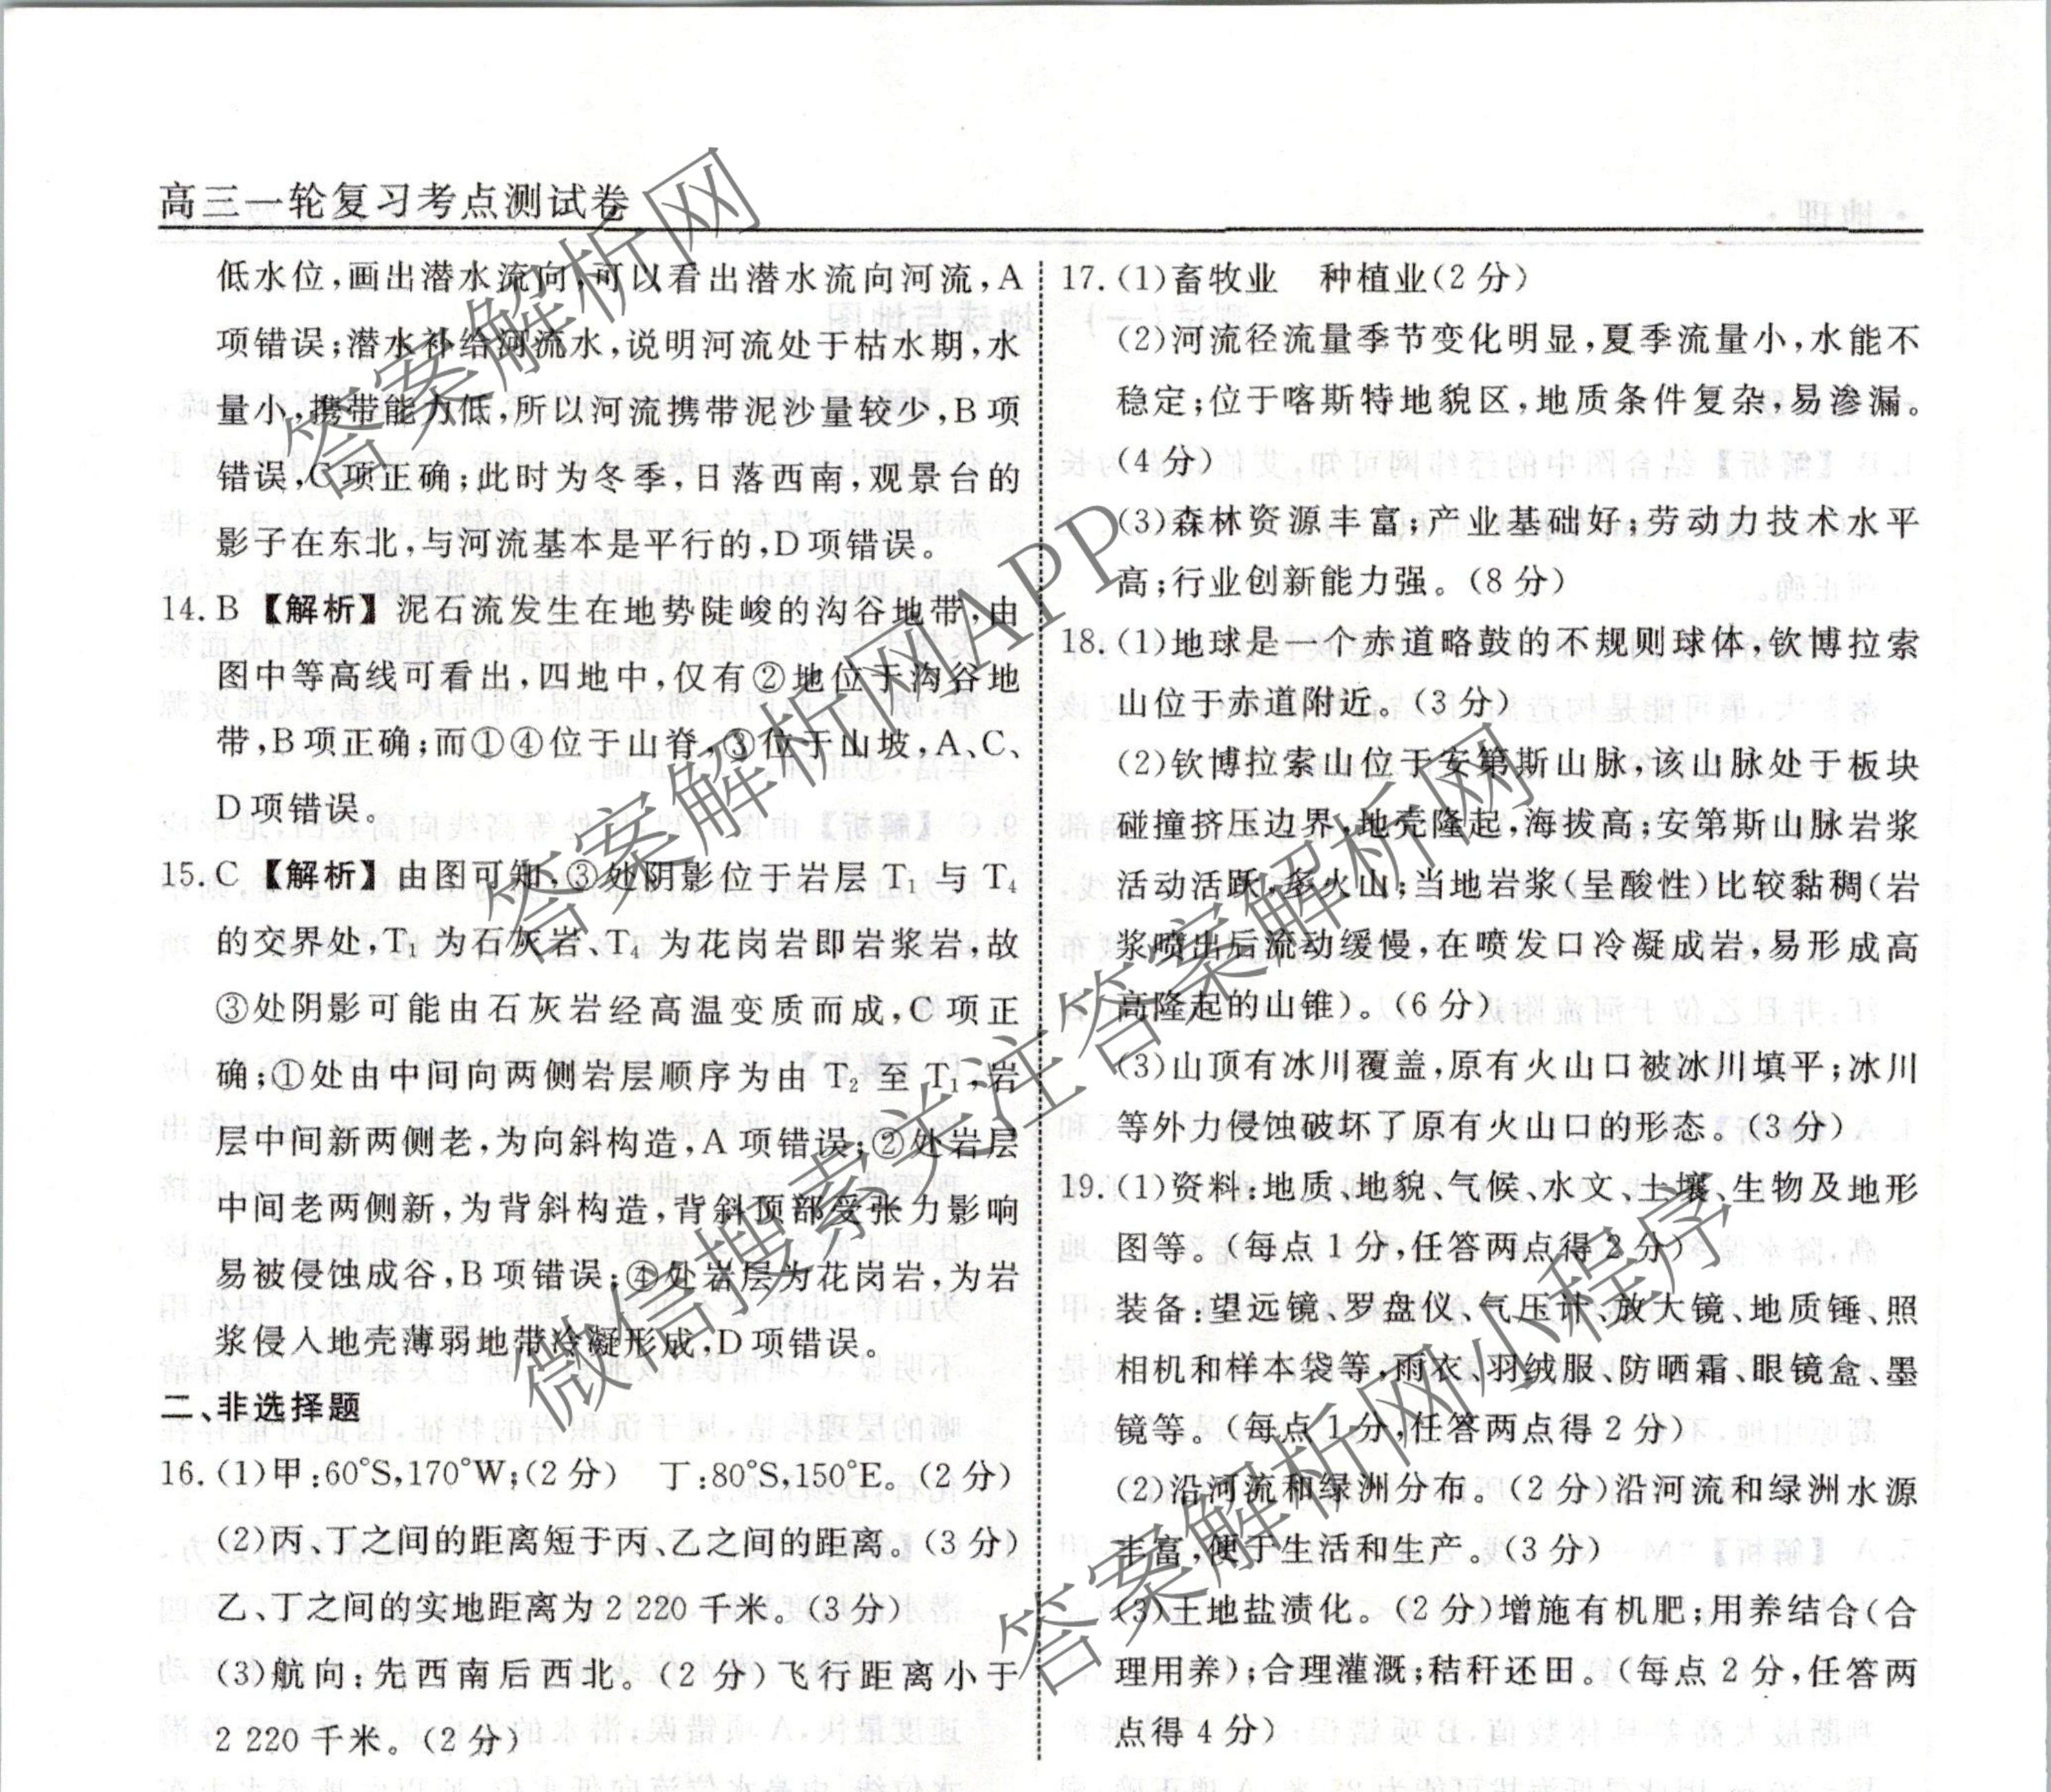 高三一轮复习考点测试卷
低水位,画出潜水流向,可以看出潜水流向河流,A
项错误;潜水补给河流水,说明河流处于枯水期,水
量小,携带能力低,所以河流携带泥沙量较少,B项
错误,C项正确;此时为冬季,日落西南,观景台的
影子在东北,与河流基本是平行的,D项错误。
14. B【解析】泥石流发生在地势陡峻的沟谷地带,由
图中等高线可看出,四地中,仅有②地位于沟谷地
带,B项正确;而①④位于山脊,③位于山坡,A、C、
D项错误。
15. C【解析】由图可知,③处阴影位于岩层 T₁ 与 T₄
的交界处,T₁ 为石灰岩、T₄ 为花岗岩即岩浆岩,故
③处阴影可能由石灰岩经高温变质而成,C项正
确;①处由中间向两侧岩层顺序为由 T₂ 至 T₁,岩
层中间新两侧老,为向斜构造,A项错误;②处岩层
中间老两侧新,为背斜构造,背斜顶部受张力影响
易被侵蚀成谷,B项错误;④处岩层为花岗岩,为岩
浆侵入地壳薄弱地带冷凝形成,D项错误。
二、非选择题
16. (1)甲:60°S,170°W;(2分) 丁:80°S,150°E。(2分)
(2)丙、丁之间的距离短于丙、乙之间的距离。(3分)
乙、丁之间的实地距离为2 220千米。(3分)
(3)航向:先西南后西北。(2分)飞行距离小于
2 220千米。(2分)
17. (1)畜牧业 种植业(2分)
(2)河流径流量季节变化明显,夏季流量小,水能不
稳定;位于喀斯特地貌区,地质条件复杂,易渗漏。
(4分)
(3)森林资源丰富;产业基础好;劳动力技术水平
高;行业创新能力强。(8分)
18. (1)地球是一个赤道略鼓的不规则球体,钦博拉索
山位于赤道附近。(3分)
(2)钦博拉索山位于安第斯山脉,该山脉处于板块
碰撞挤压边界,地壳隆起,海拔高;安第斯山脉岩浆
活动活跃,多火山;当地岩浆(呈酸性)比较黏稠(岩
浆喷出后流动缓慢,在喷发口冷凝成岩,易形成高
高隆起的山锥)。(6分)
(3)山顶有冰川覆盖,原有火山口被冰川填平;冰川
等外力侵蚀破坏了原有火山口的形态。(3分)
19. (1)资料:地质、地貌、气候、水文、土壤、生物及地形
图等。(每点1分,任答两点得2分)
装备:望远镜、罗盘仪、气压计、放大镜、地质锤、照
相机和样本袋等,雨衣、羽绒服、防晒霜、眼镜盒、墨
镜等。(每点1分,任答两点得2分)
(2)沿河流和绿洲分布。(2分)沿河流和绿洲水源
丰富,便于生活和生产。(3分)
(3)土地盐渍化。(2分)增施有机肥;用养结合(合
理用养);合理灌溉;秸秆还田。(每点2分,任答两
点得4分)
答案解析网
答案解析网APP
微信搜索关注答案解析网
答案解析网小程序